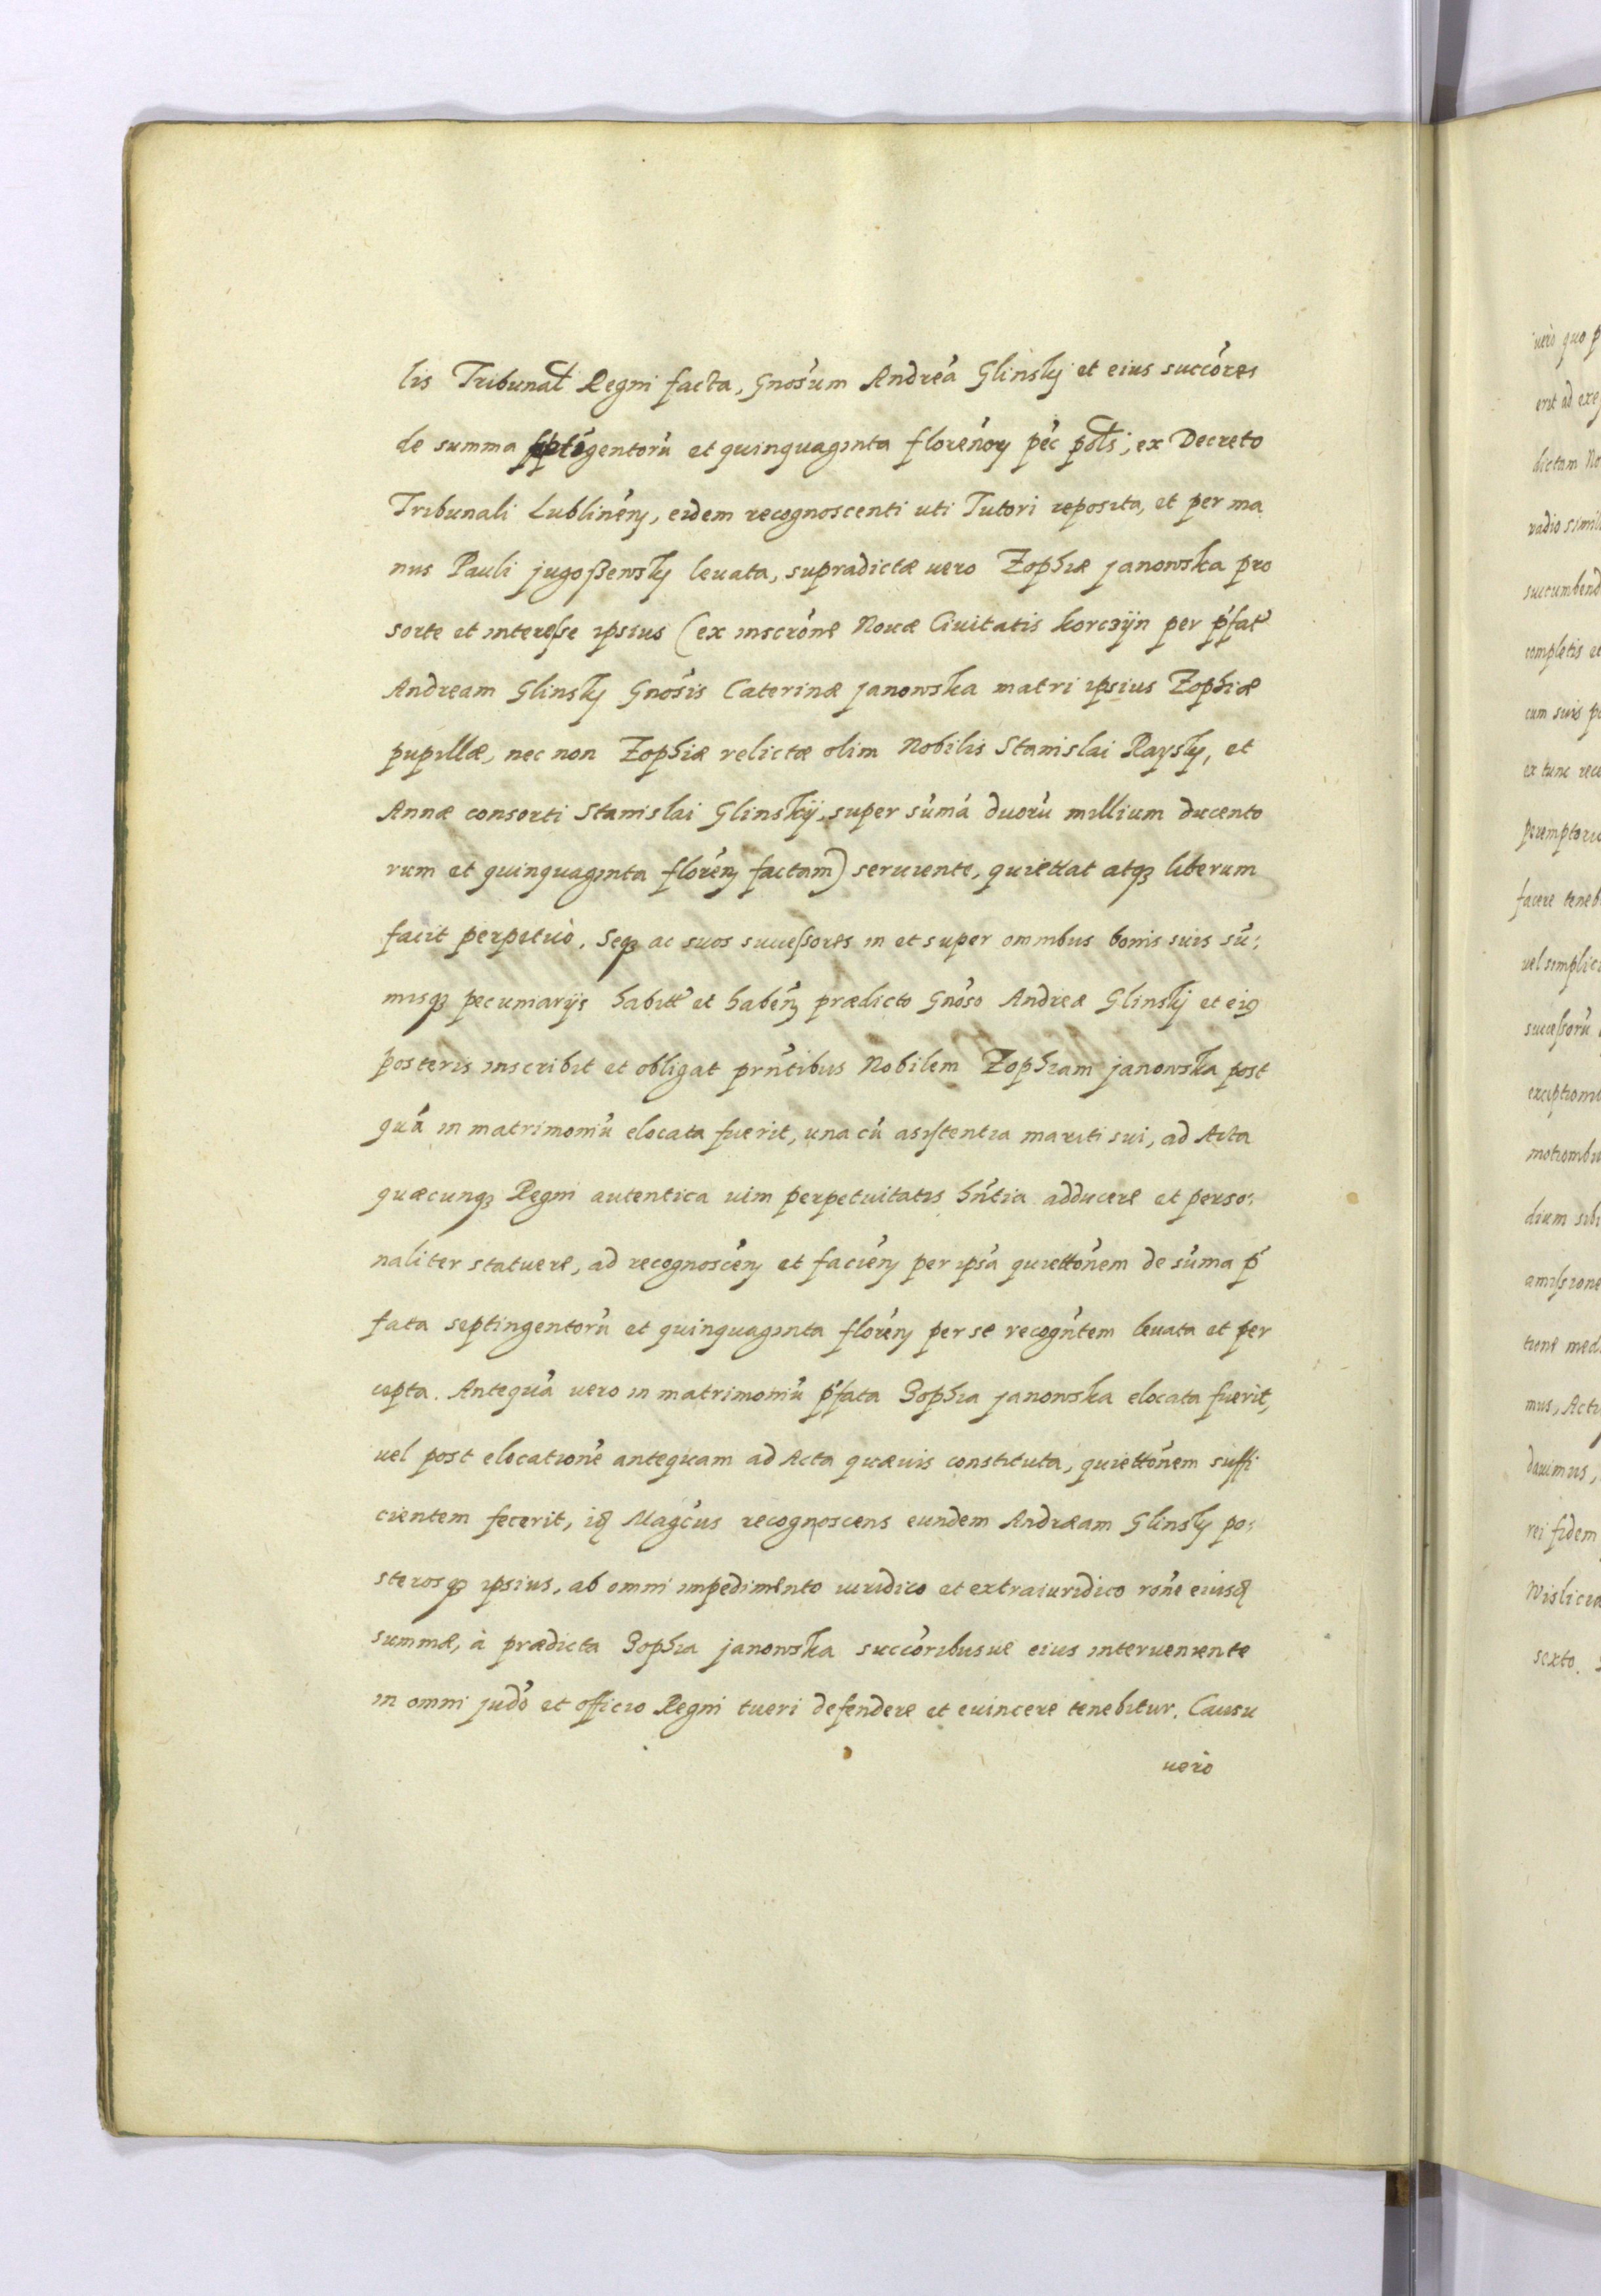 lis Tribunal Regni facta, Gnosum Andreã Glinsky et eius succores
de summa septigentorũ et quinquaginta florenorũ pec pols; ex Decreto
Tribunali Lublinen, eidem recognoscenti uti Tutori reposita, et per ma
nus Pauli jugoßewsky levata, supradictæ uero Zophiæ janowska pro
sorte et interesse ipsius (ex inscrone Nouæ Ciuitatis Korczÿn per pfat
Andream Glinsky Gnosis Caterinæ janowska matri ipsius Zophiæ
pupillæ, nec non Zophiæ relictæ olim Nobilis Stanislai Raysky, et
Annæ consorti Stanislai Glinskÿ, super sumã duorũ millium ducento
rum et quinquaginta floren factam) seruiente, quiettat atq3 liberum
facit perpetuò. Seq3 ac suos successores in et super omnibus bonis suis sũ:
misq3 pecuniarijs habit et haben prædicto Gnoso Andreæ Glinskj et ei9
posteris inscribit et obligat pr̃ntibus Nobilem Zophiam janowska post
quã in matrimoniũ elocata fuerit, una cũ asistentia mariti sui, ad Acta
quæcunq3 Regni autentica uim perpetuitatis hñtia adducere et perso:
naliter statuere, ad recognoscen et facien per ipsã quiettonem de sũma p
fata septingentorũ et quinquaginta floren per se recogntem leuata et per
cepta. Antequã uero in matrimoniũ pfata Sophia janowska elocata fuerit,
uel post elocationẽ antequam ad Acta quæuis constituta, quiettonem suffi
cientem fecerit, id Magcus recognoscens eundem Andræam Glinsky po:
sterosq3 ipsius, ab omni impedimento iuridico et extraiuridico rone eiusd
summæ, à prædicta Sophia janowska succoribusue eius interueniente
in omni judo et officio Regni tueri defendere et euincere tenebitur. Causu
uero
uerò quo p
erit ad exe
dictam No
vadio simil
succumbend
completis et
cum suis p
ex tunc rec
peremptoriu
facere teneb
uel simplici
successorũ
exceptioni
motionibu
dium sibi
amissione
tione med
mus, Acti
dauimus,
rei fidem
Wislicia
sexto.